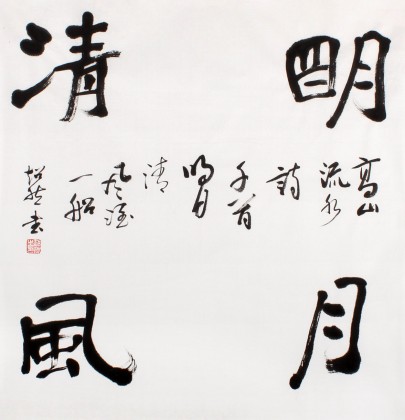 明月
清風
高山
流水
詩
千首
明月
清
風酒
一船
书